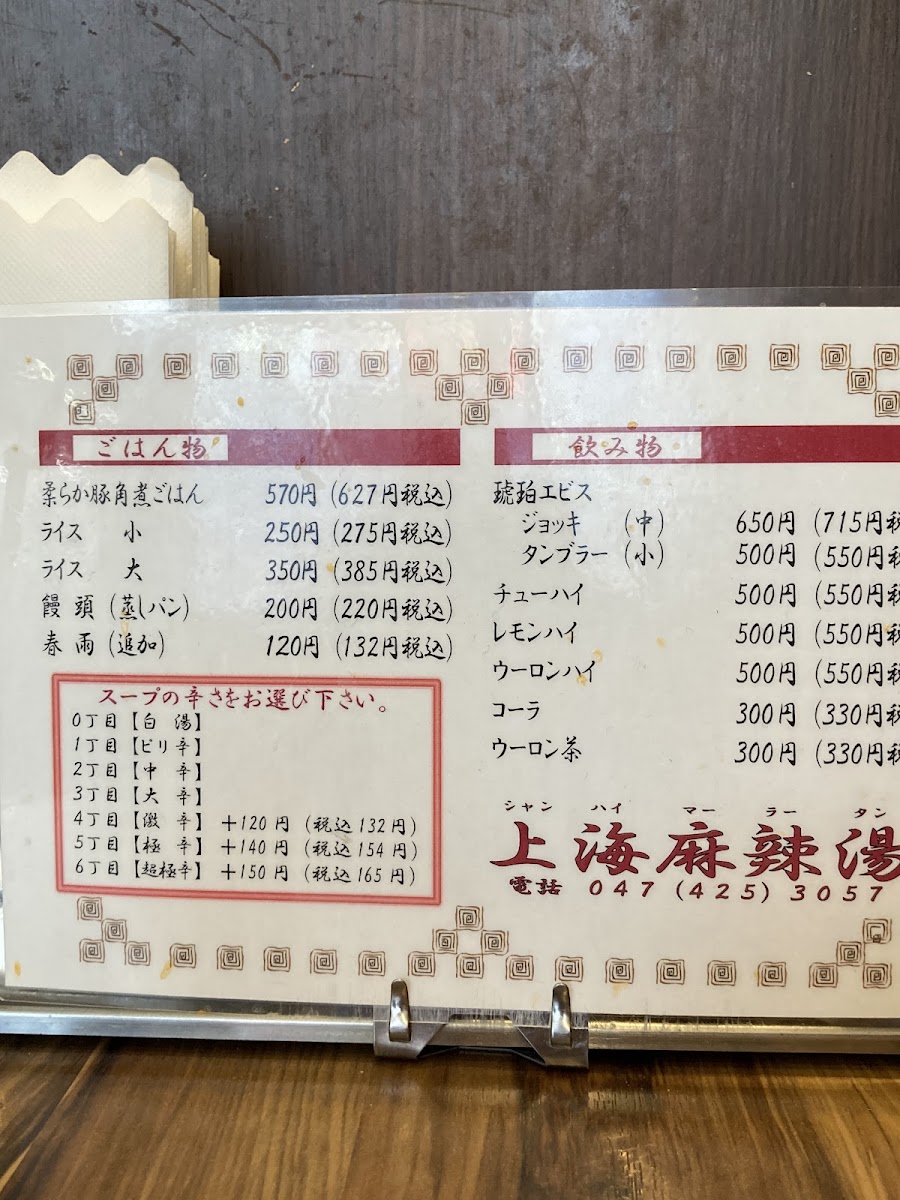 ごはん物
柔らか豚角煮ごはん 570円 (627円税込)
ライス 小 250円 (275円税込)
ライス 大 350円 (385円税込)
饅頭 (蒸しパン) 200円 (220円税込)
春雨 (追加) 120円 (132円税込)
スープの辛さをお選び下さい。
0丁目【白 湯】
1丁目【ピリ辛】
2丁目【中 辛】
3丁目【大 辛】
4丁目【激 辛】 +120円 (税込132円)
5丁目【極 辛】 +140円 (税込154円)
6丁目【超極辛】 +150円 (税込165円)
飲み物
琥珀エビス
ジョッキ (中) 650円 (715円税
タンブラー (小) 500円 (550円税
チューハイ 500円 (550円税
レモンハイ 500円 (550円税
ウーロンハイ 500円 (550円税
コーラ 300円 (330円税
ウーロン茶 300円 (330円税
シャン ハイ マー ラー タン
上海麻辣湯
電話 047 (425) 3057